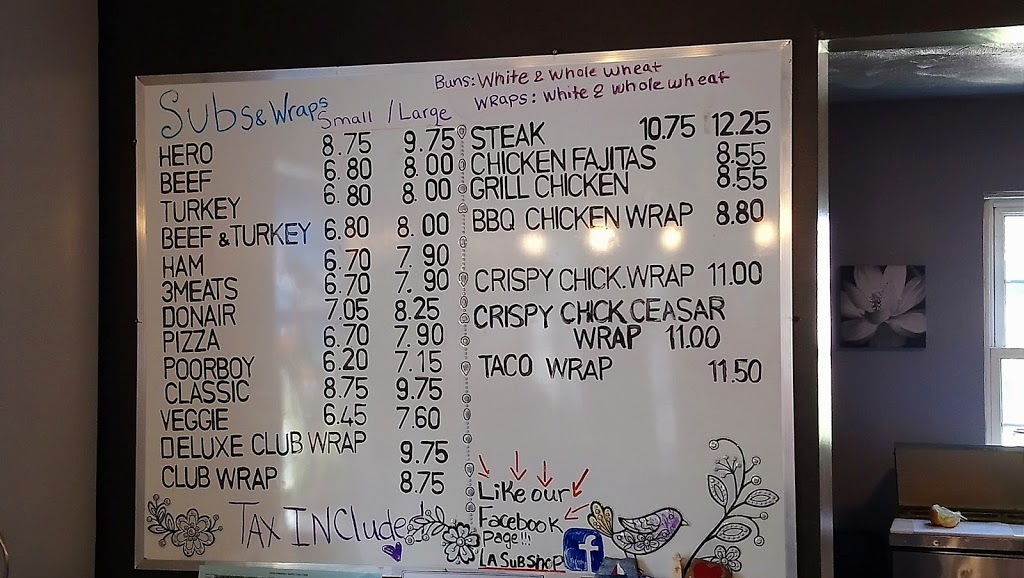 Subs & Wraps
Small / Large
HERO 8.75 9.75
BEEF 6.80 8.00
TURKEY 6.80 8.00
BEEF & TURKEY 6.80 8.00
HAM 6.70 7.90
3MEATS 6.70 7.90
DONAIR 7.05 8.25
PIZZA 6.70 7.90
POORBOY 6.20 7.15
CLASSIC 8.75 9.75
VEGGIE 6.45 7.60
DELUXE CLUB WRAP 9.75
CLUB WRAP 8.75
TAX INCluded
Buns: White & Whole wheat
WRaps: white & whole wheat
STEAK 10.75 12.25
CHICKEN FAJITAS 8.55
GRILL CHICKEN 8.55
BBQ CHICKEN WRAP 8.80
CRISPY CHICK. WRAP 11.00
CRISPY CHICK CEASAR
WRAP 11.00
TACO WRAP 11.50
Like our
Facebook
page!!!
LA Sub Shop
f